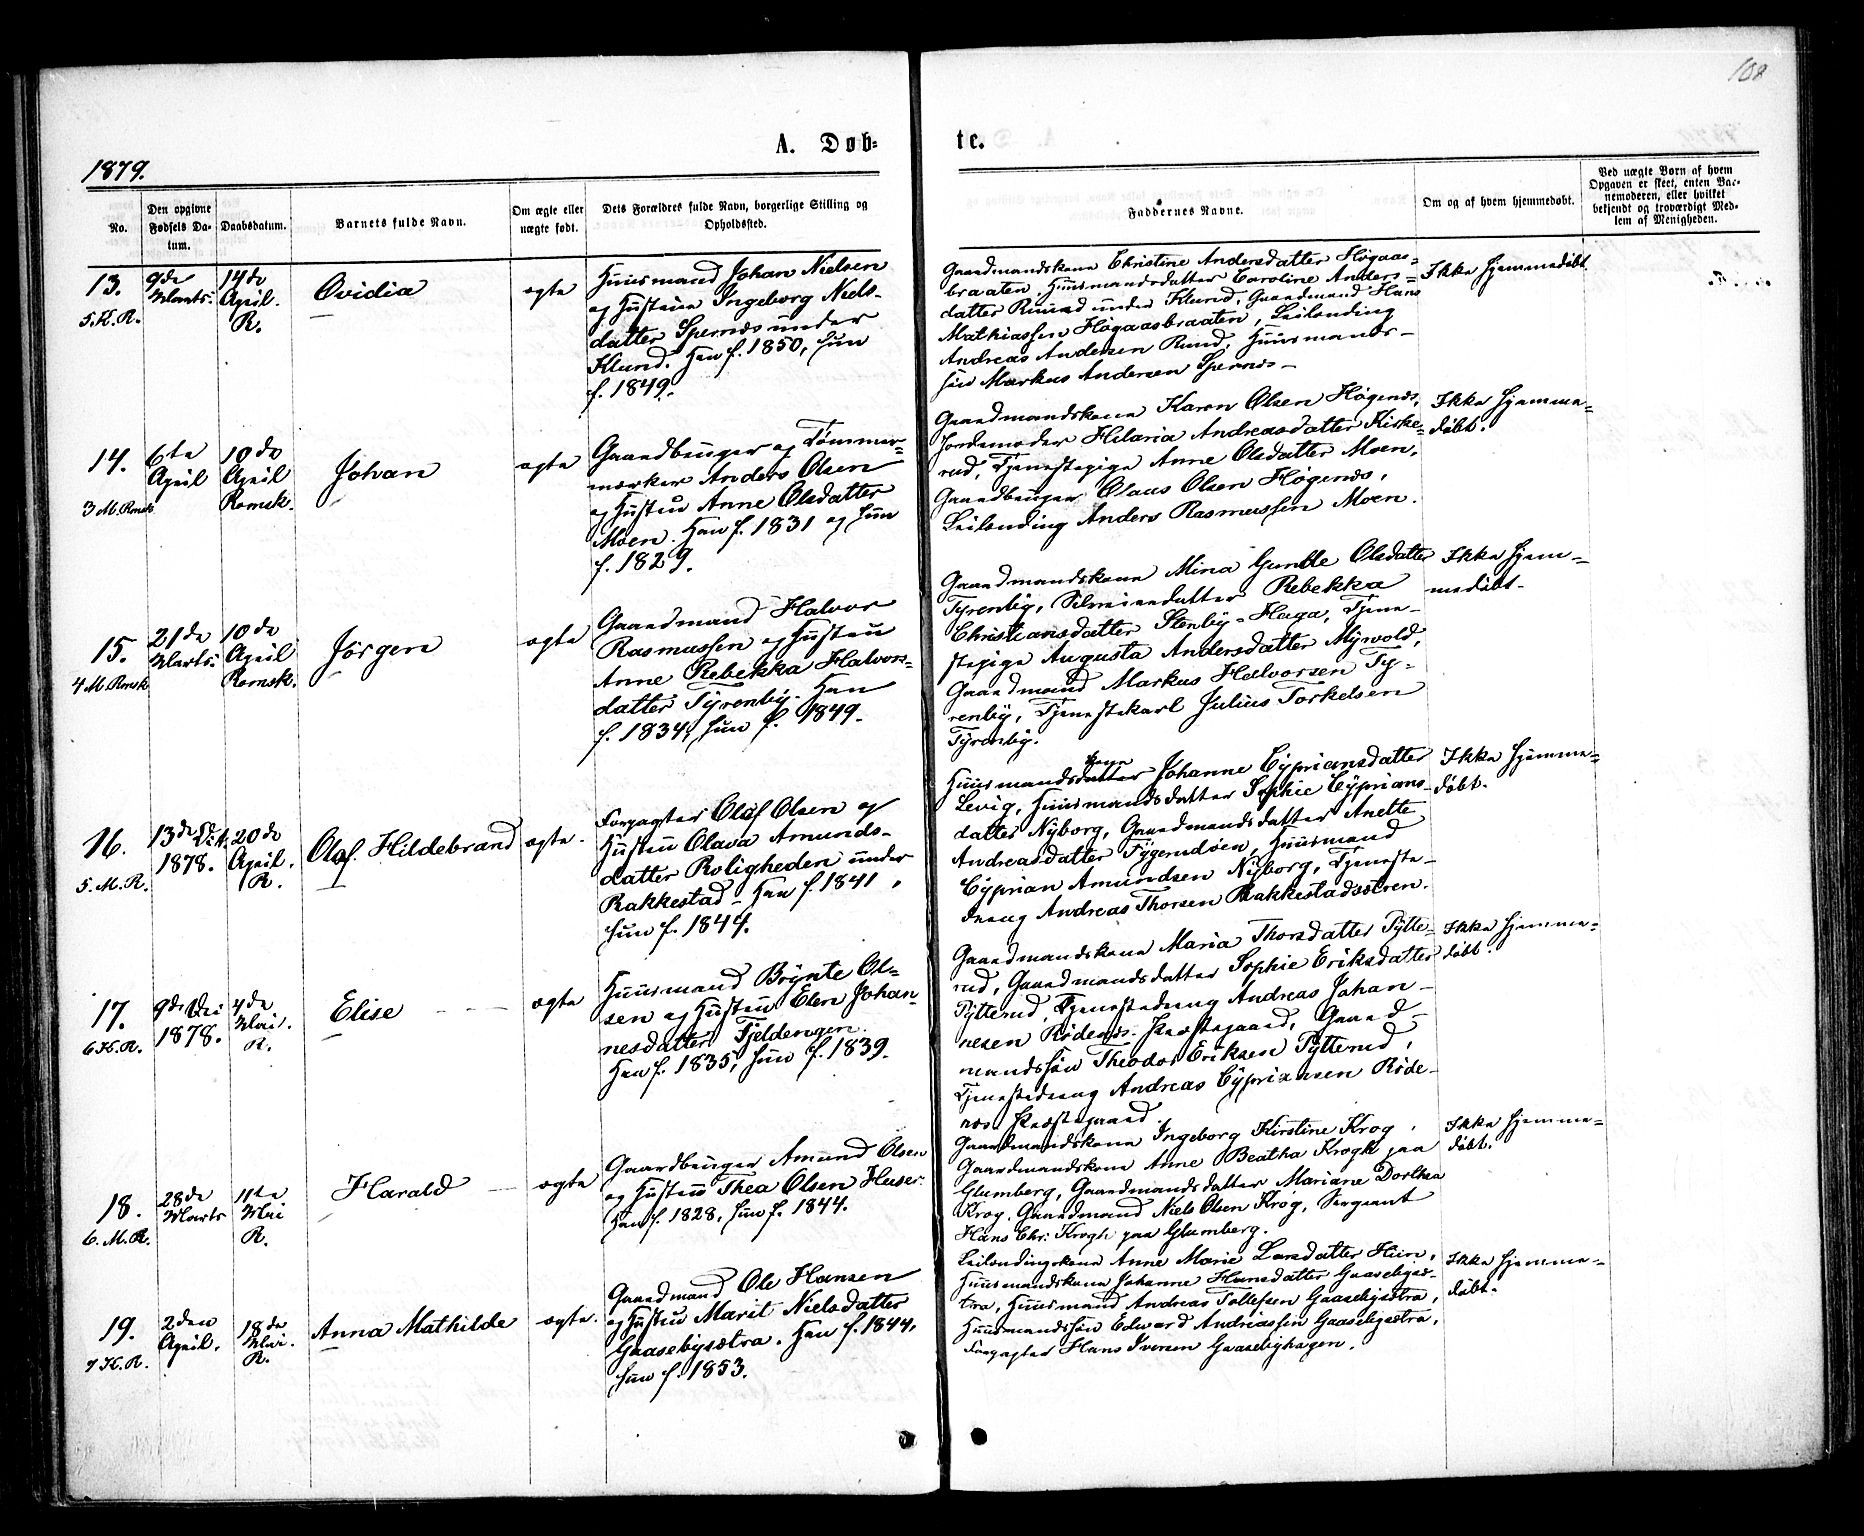 108
A. Døb=
te.
1879.
No.
Den opgivne
Fødsels Da-
tum.
Daabsdatum.
Barnets fulde Navn.
Om ægte eller
uægte født.
Dets Forældres fulde Navn, borgerlige Stilling og
Opholdssted.
Faddernes Navne.
Om og af hvem hjemmedøbt.
Ved uægte Børn af hvem
Opgaven er skeet, enten Bar-
nemoderen, eller hvilket
bekjendt og troværdigt Med-
lem af Menigheden.
13.
5. K. R.
9de
Marts.
14de
April.
R.
Ovidia
ægte
Huusmand Johan Nielsen
og Hustru Ingeborg Niels-
datter Spernæs under
Klund. Han f. 1850, hun
f. 1849.
Gaardmandskone Christine Andersdatter Høgaas-
braaten, Huusmandsdatter Caroline Anders-
datter Ruud under Klund, Gaardmand Hans
Mathiassen Høgaasbraaten, Leilending
Andreas Andersen Ruud, Huusmands-
søn Markus Andersen Spernæs-
Ikke hjemmedøbt.
14.
3 M. Romsk.
6te
April
10de
April
Romsk.
Johan
ægte
Gaardbruger og Tømmer-
mærker Anders Olsen
og Hustru Anne Olsdatter
Moen. Han f. 1831 og hun
f. 1829.
Gaardmandskone Karen Olsen Høgenæs,
Jordemoder Hilaria Andreasdatter Kirke-
rud, Tjenestepige Anne Olsdatter Moen,
Gaardbruger Olaus Olsen Høgenæs,
Leilending Anders Rasmussen Moen.
Ikke hjemme-
døbt.
15.
4 M. Romsk.
21de
Marts.
10de
April
Romsk.
Jørgen
ægte
Gaardmand Halvor
Rasmussen og Hustru
Anne Rebekka Halvors-
datter Tyrenby. Han
f. 1834, hun f. 1849.
Gaardmandskone Mina Gunille Olsdatter
Tyrenby, Selveierdatter Rebekka
Christiansdatter Stenby-Haga, Tjene-
stepige Augusta Andersdatter Myrvold,
Gaardmand Markus Halvorsen Ty-
renby, Tjenestekarl Julius Torkelsen
Tyrenby.
Ikke hjem-
medøbt.
16.
5. M. R.
13de Oct.
1878.
20de
April.
R.
Olaf Hildebrand
ægte.
Forpagter Olaf Olsen og
Hustru Olava Amunds-
datter Roligheden under
Rakkestad - Han f. 1841,
hun f. 1844.
kone
Huusmandsdatter Johanne Cypriansdatter
Levig, Huusmandsdatter Sophie Cyprians-
datter Nyborg, Gaardmandsdatter Anette
Andreasdatter Tygerudøen, Huusmand
Cyprian Amundsen Nyborg, Tjeneste-
dreng Andreas Thorsen Rakkestadsætren.
Ikke hjemme-
døbt.
17.
6 K. R.
1878.
4de
Mai.
R.
Elise
ægte
Huusmand Brynte Ol-
sen og Hustru Elen Johan-
nesdatter Fjeldengen.
Han f. 1835, hun f. 1839.
Gaardmandskone Maria Thorsdatter Pytte-
rud, Gaardmandsdatter Sophie Eriksdatter
Pytterud, Tjenestedreng Andreas Johan-
nesen Rødenæs Præstegaard, Gaard-
mandssøn Theodor Eriksen Pytterud,
Tjenestedreng Andreas Cypriansen Røde-
næs Præstegaard.
Ikke hjemme-
døbt.
18.
6. M. R.
28de
Marts
11te
Mai
R.
Harald
ægte
Gaardbruger Amund Olsen
og Hustru Thea Olsen Huser.
Han f. 1828, hun f. 1844.
Gaardmandskone Ingeborg Kirstine Krog,
Gaardmandskone Anne Beatha Krogh paa
Glumberg, Gaardmandsdatter Mariane Dorthea
Krog, Gaardmand Niels Olsen Krog, Sergeant
Hans Chr. Krogh paa Glumberg.
Ikke hjemme-
døbt.
19.
7 K. R.
2den
April.
18de
Mai.
R.
Anna Mathilde
ægte.
Gaardmand Ole Hansen
og Hustru Marit Nielsdatter
Gaasebysætra. Han f. 1844,
hun f. 1853.
Leilendingskone Anne Marie Larsdatter Hien,
Huusmandskone Johanne Hansdatter Gaasebysæ-
tra, Huusmand Andreas Tollefsen Gaasebysætra,
Huusmandssøn Edvard Andreassen Gaasebysætra,
Forpagter Hans Iversen Gaasebyhagen.
Ikke hjemme-
døbt.